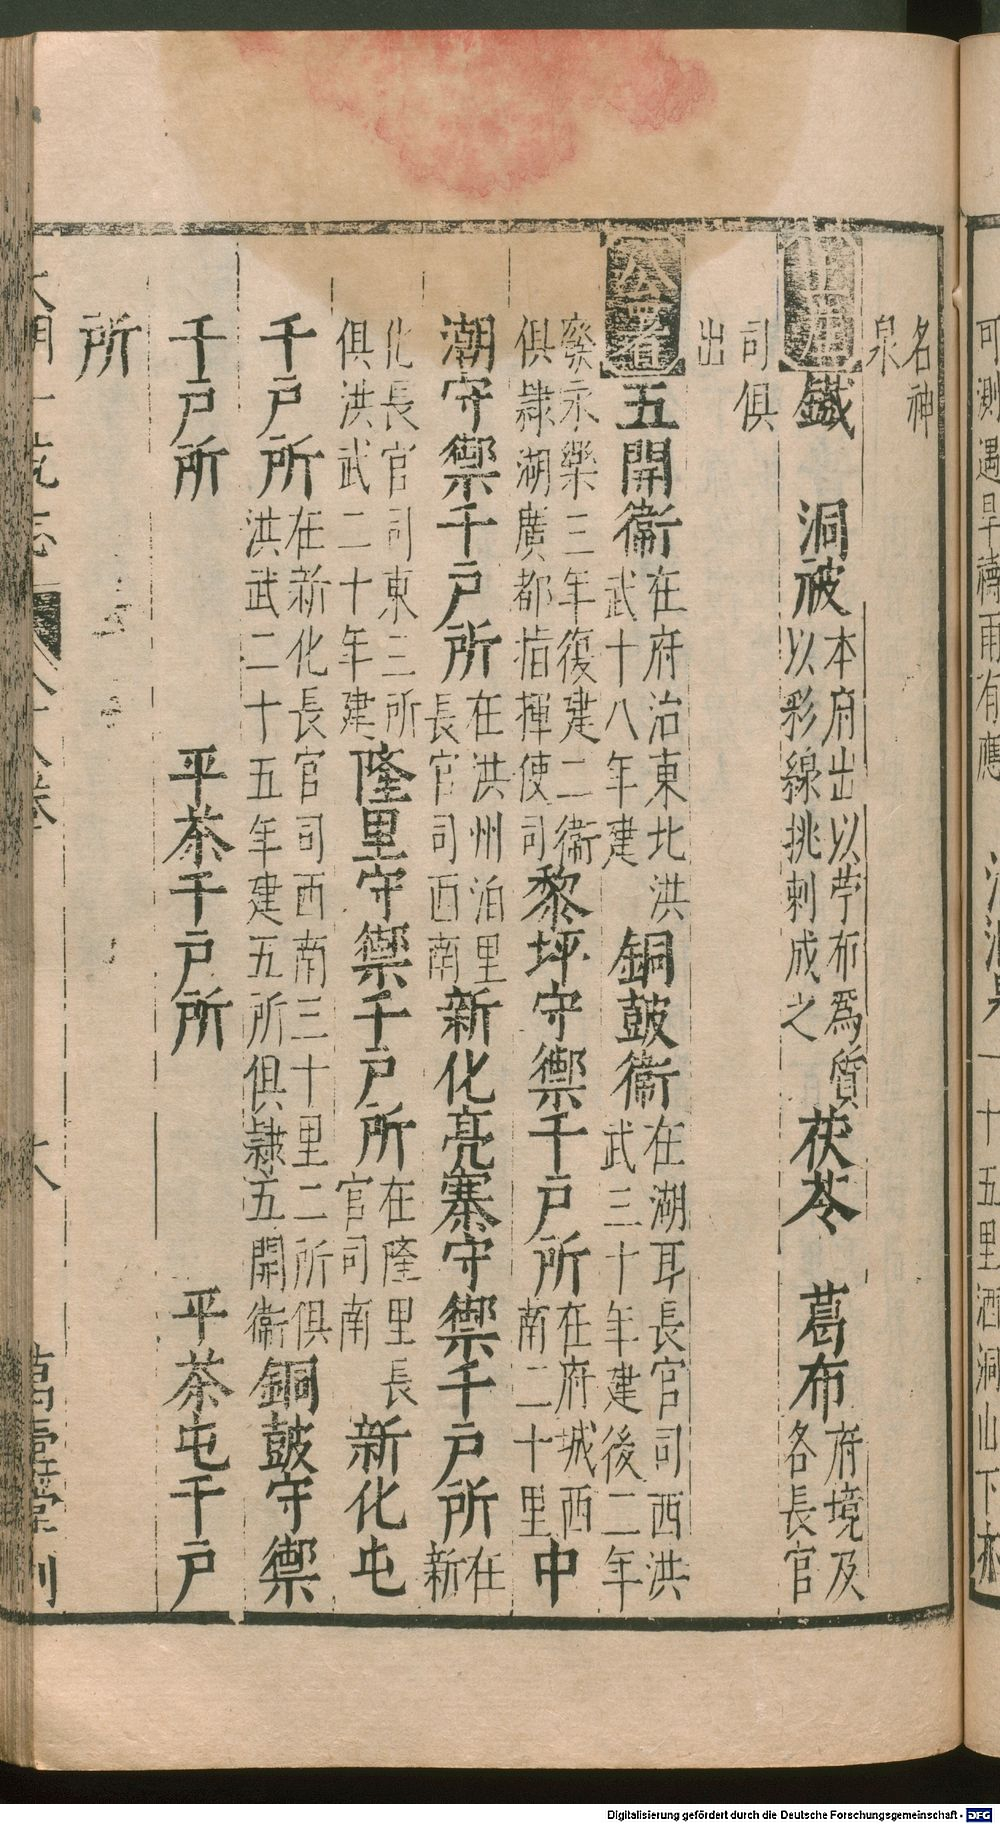 名神
泉
土産鐵 洞被本府出以苧布爲質以彩線挑刺成之茯苓 葛布府境及各長官
司俱
出
公署五開衞在府治東北洪武十八年建 銅鼓衞在湖耳長官司西洪武三十年建後二年
廢永樂三年復建二衞俱隷湖廣都指揮使司黎坪守禦千戶所在府城西南二十里中
潮守禦千戶所在洪州泊里長官司西南新化亮寨守禦千戶所在新
化長官司東三所俱洪武二十年建隆里守禦千戶所在隆里長官司南 新化屯
千戶所在新化長官司西南三十里二所俱洪武二十五年建五所俱隷五開衞銅鼓守禦
千戶所 平茶千戶所 平茶屯千戶
所
大明一統志 八十八卷 六 萬壽堂刊
可測遇旱禱雨有應 一十五里洒洞山下亦
Digitalisierung gefördert durch die Deutsche Forschungsgemeinschaft - DFG